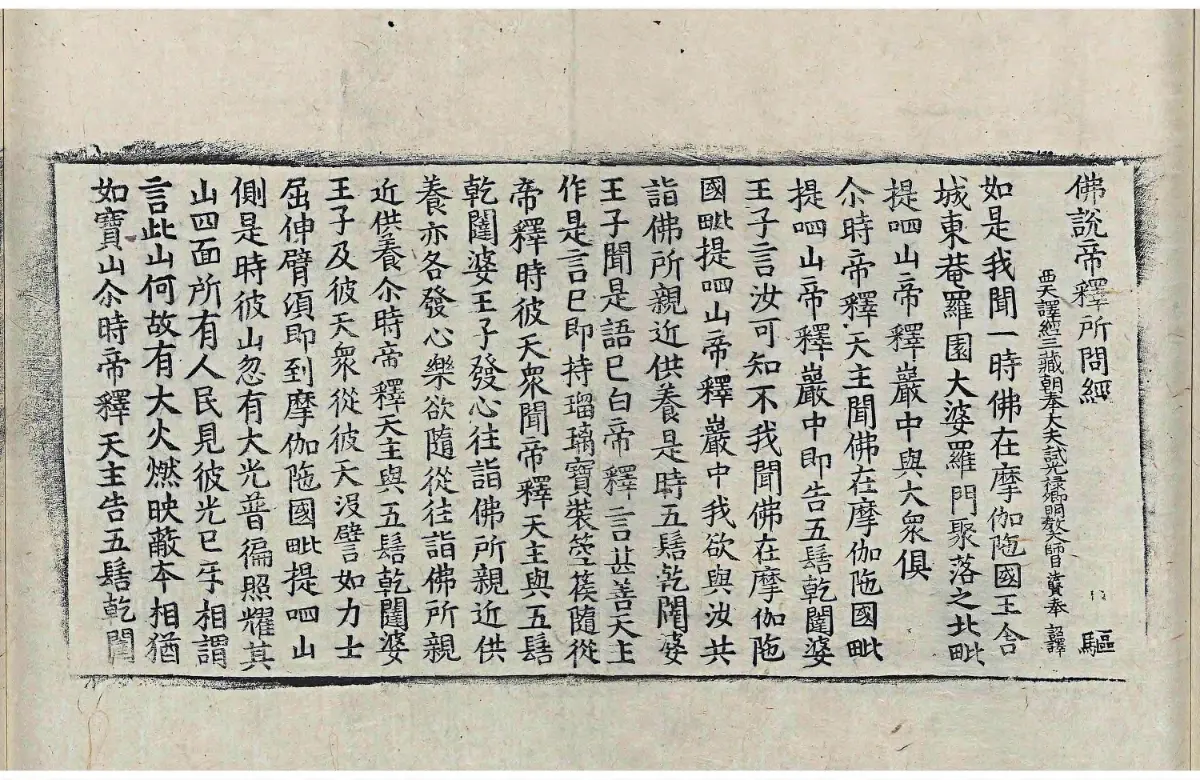 佛說帝釋所問經 驅
西天譯經三藏朝奉大夫試光祿卿明教大師臣法賢奉 詔譯
如是我聞一時佛在摩伽陁國王舍
城東菴羅園大婆羅門聚落之北毗
提呬山帝釋巖中與大衆俱
尒時帝釋天主聞佛在摩伽陁國毗
提呬山帝釋巖中即告五髻乾闥婆
王子言汝可知不我聞佛在摩伽陁
國毗提呬山帝釋巖中我欲與汝共
詣佛所親近供養是時五髻乾闥婆
王子聞是語已白帝釋言甚善天主
作是言已即持瑠璃寶裝箜篌隨從
帝釋時彼天衆聞帝釋天主與五髻
乾闥婆王子發心往詣佛所親近供
養亦各發心樂欲隨從往詣佛所親
近供養尒時帝釋天主與五髻乾闥婆
王子及彼天衆從彼天沒譬如力士
屈伸臂湏即到摩伽陁國毗提呬山
側是時彼山忽有大光普徧照耀其
山四面所有人民見彼光已互相謂
言此山何故有大火燃映蔽本相猶
如寶山尒時帝釋天主告五髻乾闥